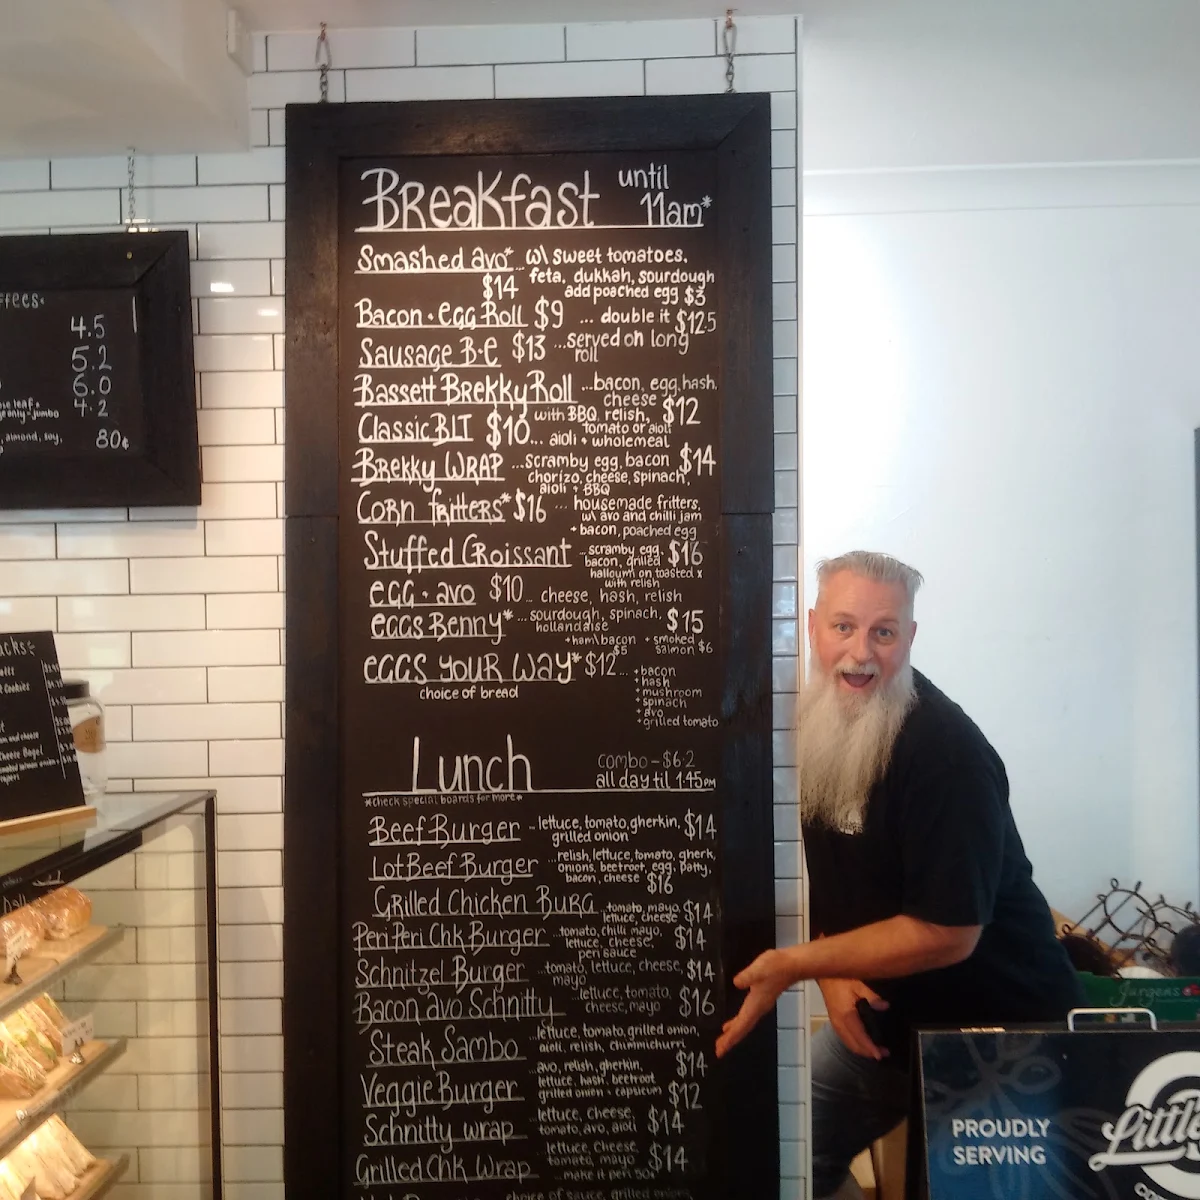 Breakfast until 11am*
Smashed avo* w\ sweet tomatoes.
feta, dukkah, sourdough
$14 add poached egg $3
Bacon • egg Roll $9 ... double it $12.5
Sausage B•E $13 ... served on long
roll
Bassett Brekky Roll ... bacon, egg, hash.
cheese $12
with BBQ. relish,
tomato or aioli
Classic BLT $10... aioli + wholemeal
Brekky WRAP ... scramby egg, bacon $14
chorizo, cheese, spinach,
aioli + BBQ
Corn fritters* $16 ... housemade fritters,
w\ avo and chilli jam
+ bacon, poached egg
Stuffed Croissant ... scramby egg. $16
bacon, grilled
halloumi on toasted x
with relish
egg • avo $10... cheese, hash, relish
eggs Benny* ... sourdough, spinach, $15
hollandaise
+ ham\bacon $5 + smoked salmon $6
eggs your way* $12...
choice of bread
+ bacon
+ hash
+ mushroom
+ spinach
+ avo
+ grilled tomato
Lunch combo - $6.2
all day til 1.45pm
*check special boards for more*
Beef Burger - lettuce, tomato, gherkin, $14
grilled onion
Lot Beef Burger ... relish, lettuce, tomato, gherk,
onions, beetroot, egg, patty,
bacon, cheese $16
Grilled Chicken Burg ... tomato, mayo, $14
lettuce, cheese
Peri Peri Chk Burger ... tomato, chilli mayo, $14
lettuce, cheese.
peri sauce
Schnitzel Burger ... tomato, lettuce, cheese, $14
mayo
Bacon avo Schnitty ... lettuce, tomato, $16
cheese, mayo
Steak Sambo ... lettuce, tomato, grilled onion,
aioli, relish, chimmichurri $14
Veggie Burger ... avo, relish, gherkin,
lettuce, hash, beetroot
grilled onion + capsicum $12
Schnitty wrap ... lettuce, cheese, $14
tomato, avo, aioli
Grilled Chk Wrap ... lettuce, cheese, $14
tomato, mayo
... make it peri 50¢
choice of sauce, grilled onions
4.5
5.2
6.0
4.2
almond, soy,
80¢
Cookies
Cheese Bagel
Jurgens
PROUDLY
SERVING
Little